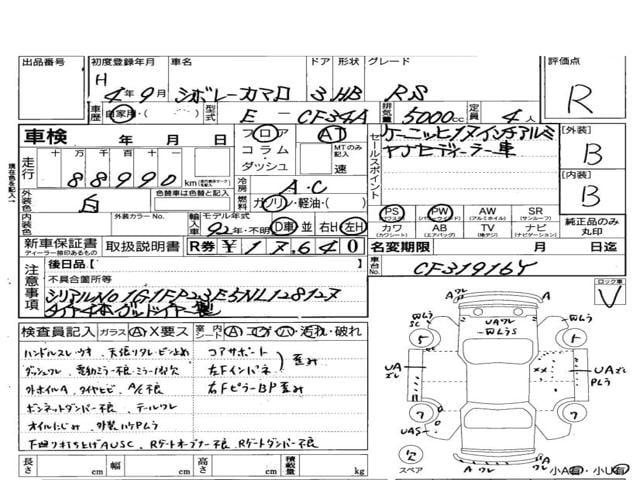 出品番号 初度登録年月 車名 ドア 形状 グレード 評価点
H 4年9月 シボレーカマロ 3HB RS R
車歴 自家用・( ) 型式 E-CF34A 排気量 5000cc 定員 4人
車検 年 月 日 フロア AT
コラム・ダッシュ MTのみ記入 速
セールスポイント ケーニッヒ17インチアルミ
ヤナセディーラー車
[外装] B
[内装] B
走行 十万千百十一
88990 km
冷房 A・C
燃料 ガソリン・軽油・( )
外装色 白 色替車は色替と記入
内装色 外装カラーNo. 輸入車 モデル年式 92年・不明 D車 並 右H 左H
PS (パワーステアリング) PW (パワーウインドウ) AW (アルミホイル) SR (サンルーフ)
カワ (カワシート) AB (エアバッグ) TV (種デジ) ナビ (ナビゲーション)
純正品のみ丸印
新車保証書 ディーラー捺印あるもの 取扱説明書 R券 ¥17,640 名変期限 月 日迄
注意事項 後日品[
不具合箇所等
シリアルNo 1G1FP23F5NL128127
タイヤ4本グッドイヤー製
車台No. CF31916Y
ロック車
検査員記入 ガラス A X要ス 室内 シート A コゲ 穴 汚れ・破れ
ハンドルスレ・ウキ、天張りタレ・ビン止め コアサポート 歪み
ダッシュワレ、電動ミラー不良・ミラー1ヶ欠 左Fインパネ
外ホイルA、タイヤヒビ、A/C不良 右FピラーBP歪み
ボンネットダンパー不良、テールワレ
オイルにじみ、外装ハウPムラ
下回りオチ上げAUSC、Rゲートオープナー不良、Rゲートダンパー不良
長さ cm 幅 cm 高さ cm 積載量 kg
スペア
小A有・小U有